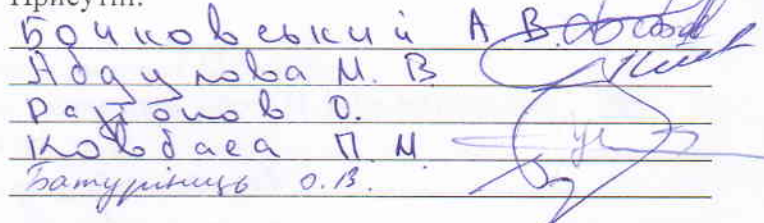 Присутні:
Бойковський А В.
Абдулова М. В
Рагтонов О.
Ковбаса П М
Батуринець О.В.